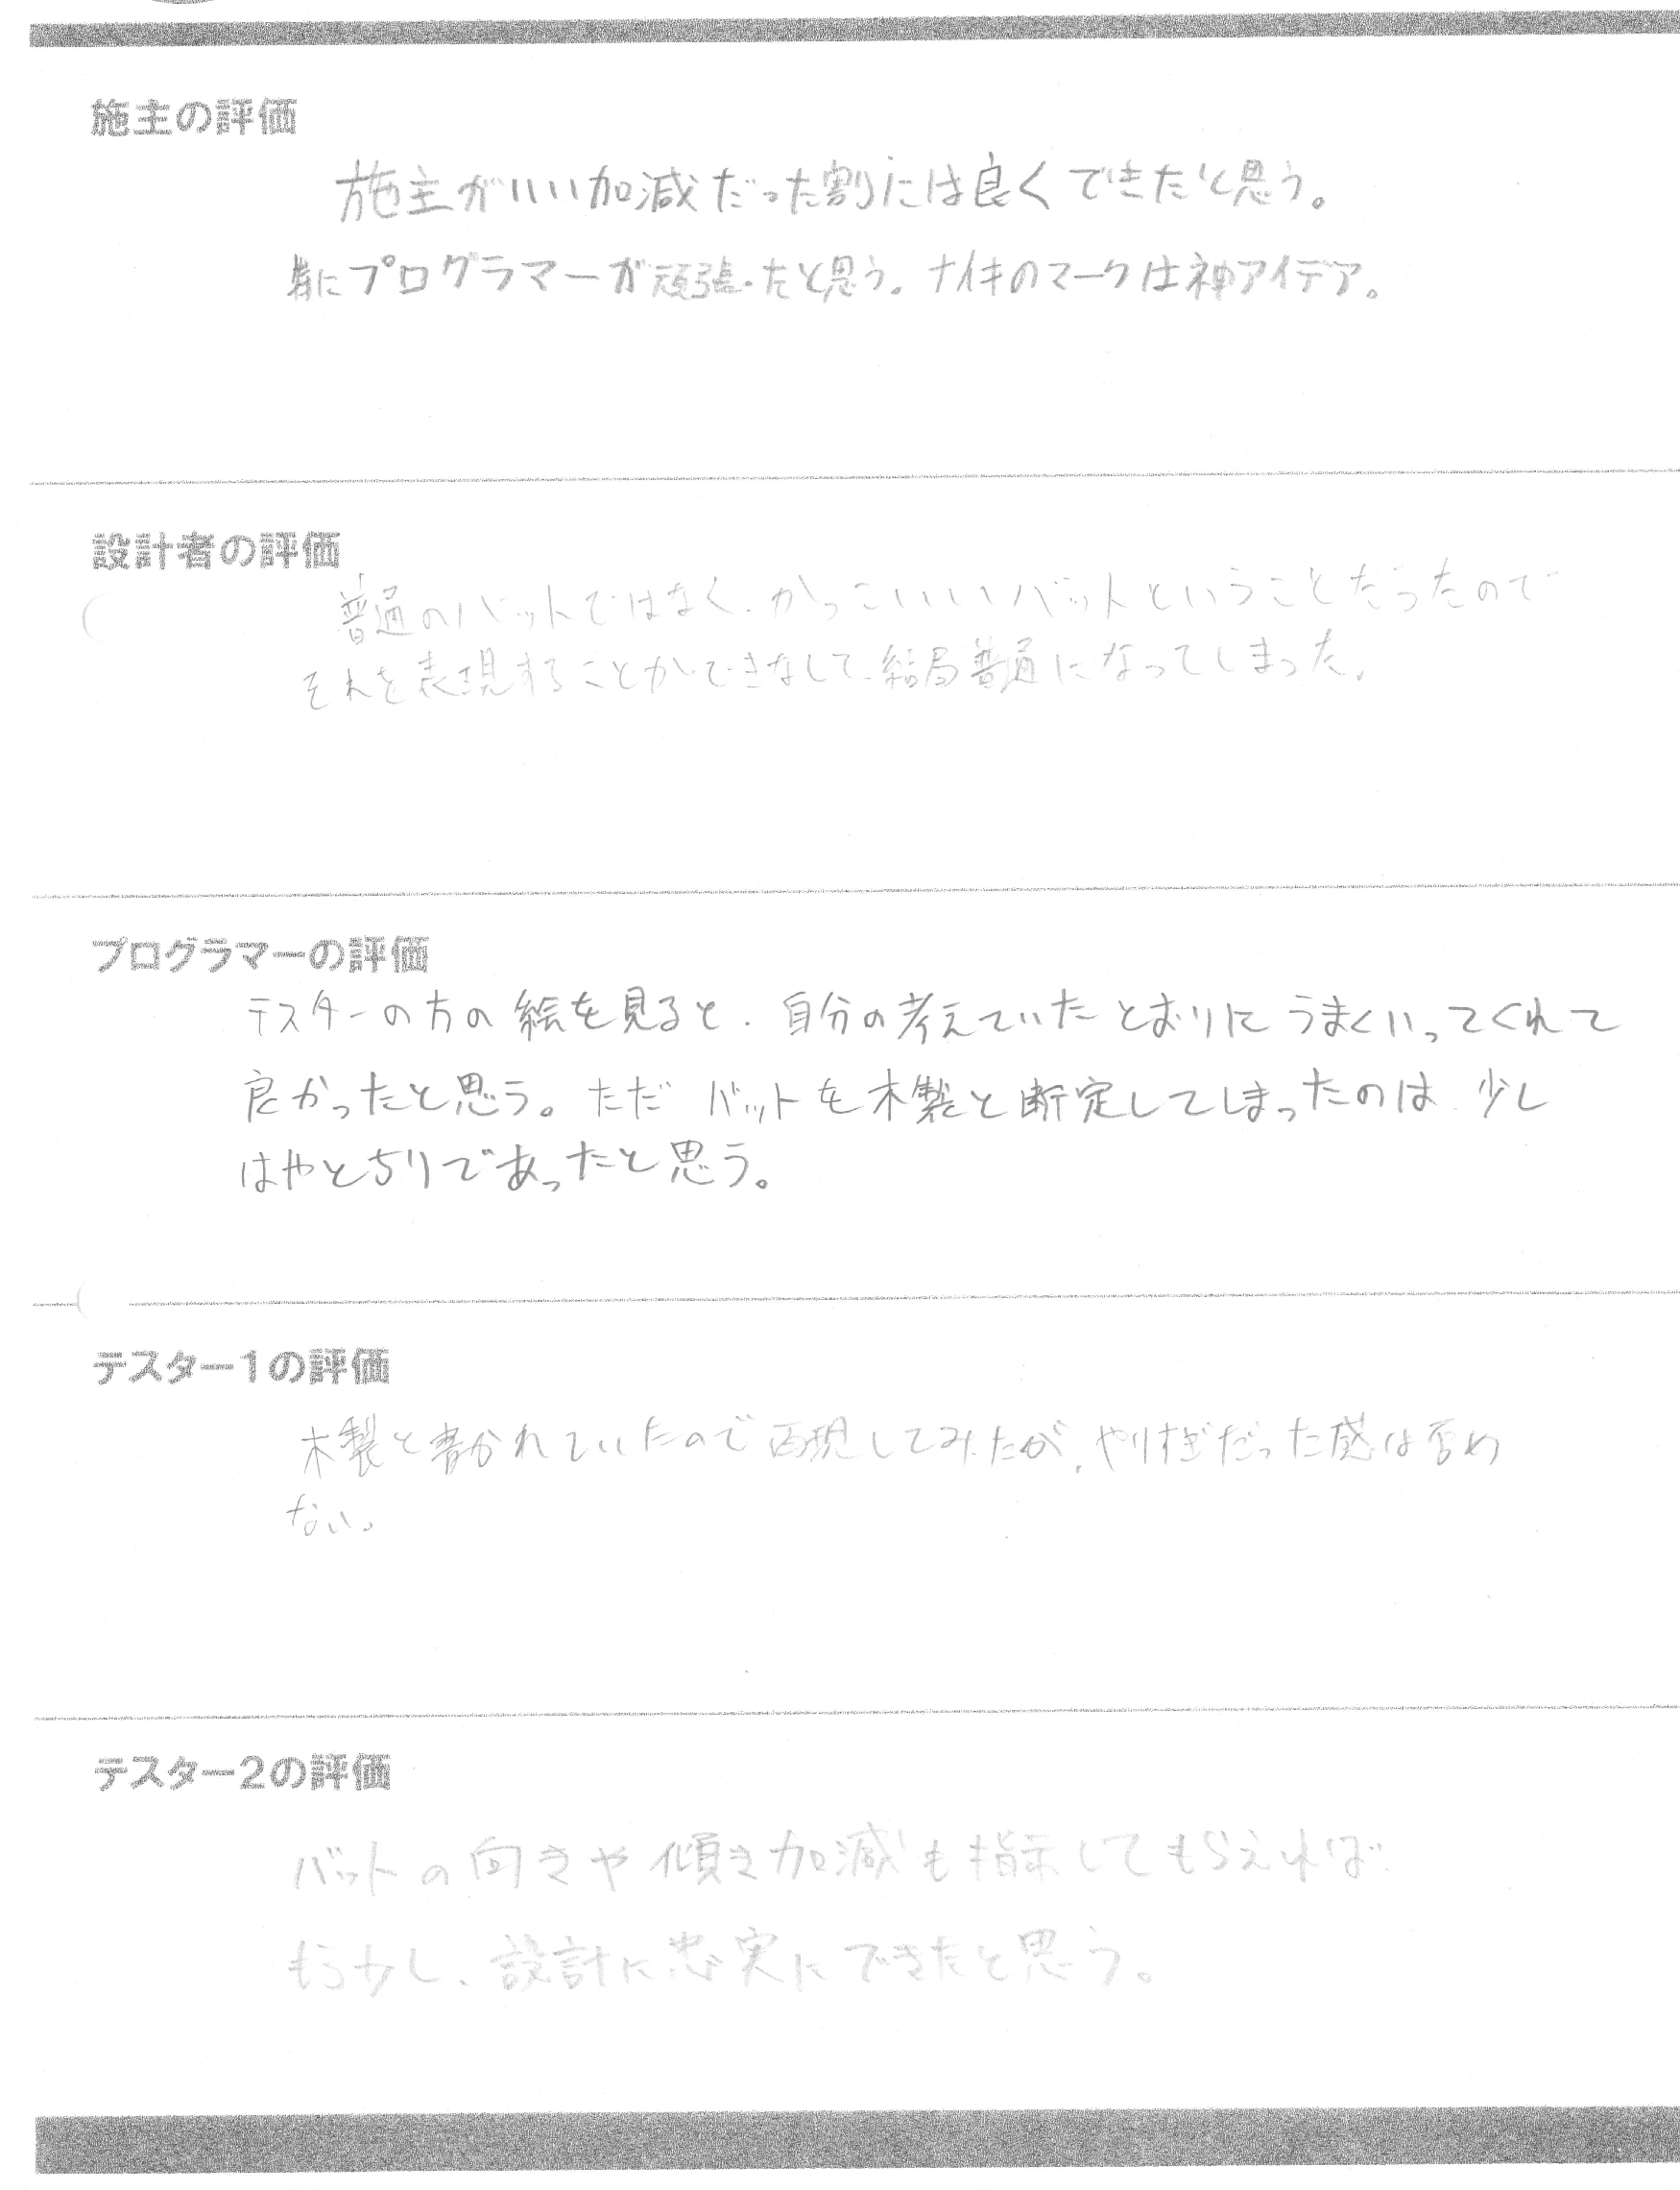 施主の評価
施主がいい加減だった割には良くできたと思う。
特にプログラマーが頑張ったと思う。ナイキのマークは神アイデア。
設計者の評価
普通のバットではなく、かっこいいバットということだったので
それを表現することができなくて結局普通になってしまった。
プログラマーの評価
テスターの方の絵を見ると、自分の考えていたとおりにうまくいってくれて
良かったと思う。ただ バットを木製と断定してしまったのは、少し
はやとちりであったと思う。
テスター1の評価
木製と書かれていたので再現してみたが、やりすぎだった感は否め
ない。
テスター2の評価
バットの向きや傾き加減も指示してもらえれば
もう少し、設計に忠実にできたと思う。